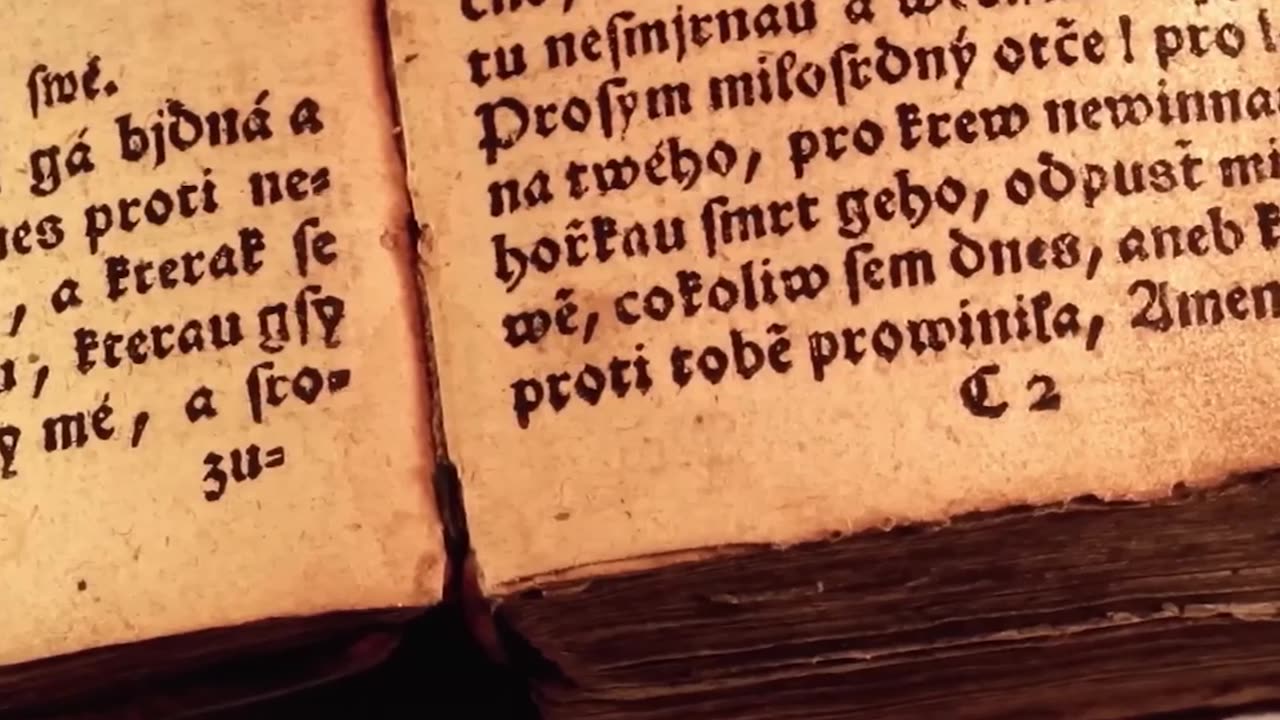 ſwé.
gá bjdná a
proti ne⸗
, a kterak ſe
, kterau gſy
mé, a ſro⸗
zu⸗
tu neſmjrnau a
Proſym miloſrdný otče! pro
na twého, pro krew newinnau
hořkau ſmrt geho, odpusť mi
wě, cokoliw ſem dnes, aneb
proti tobě prowinila, Amen
C 2